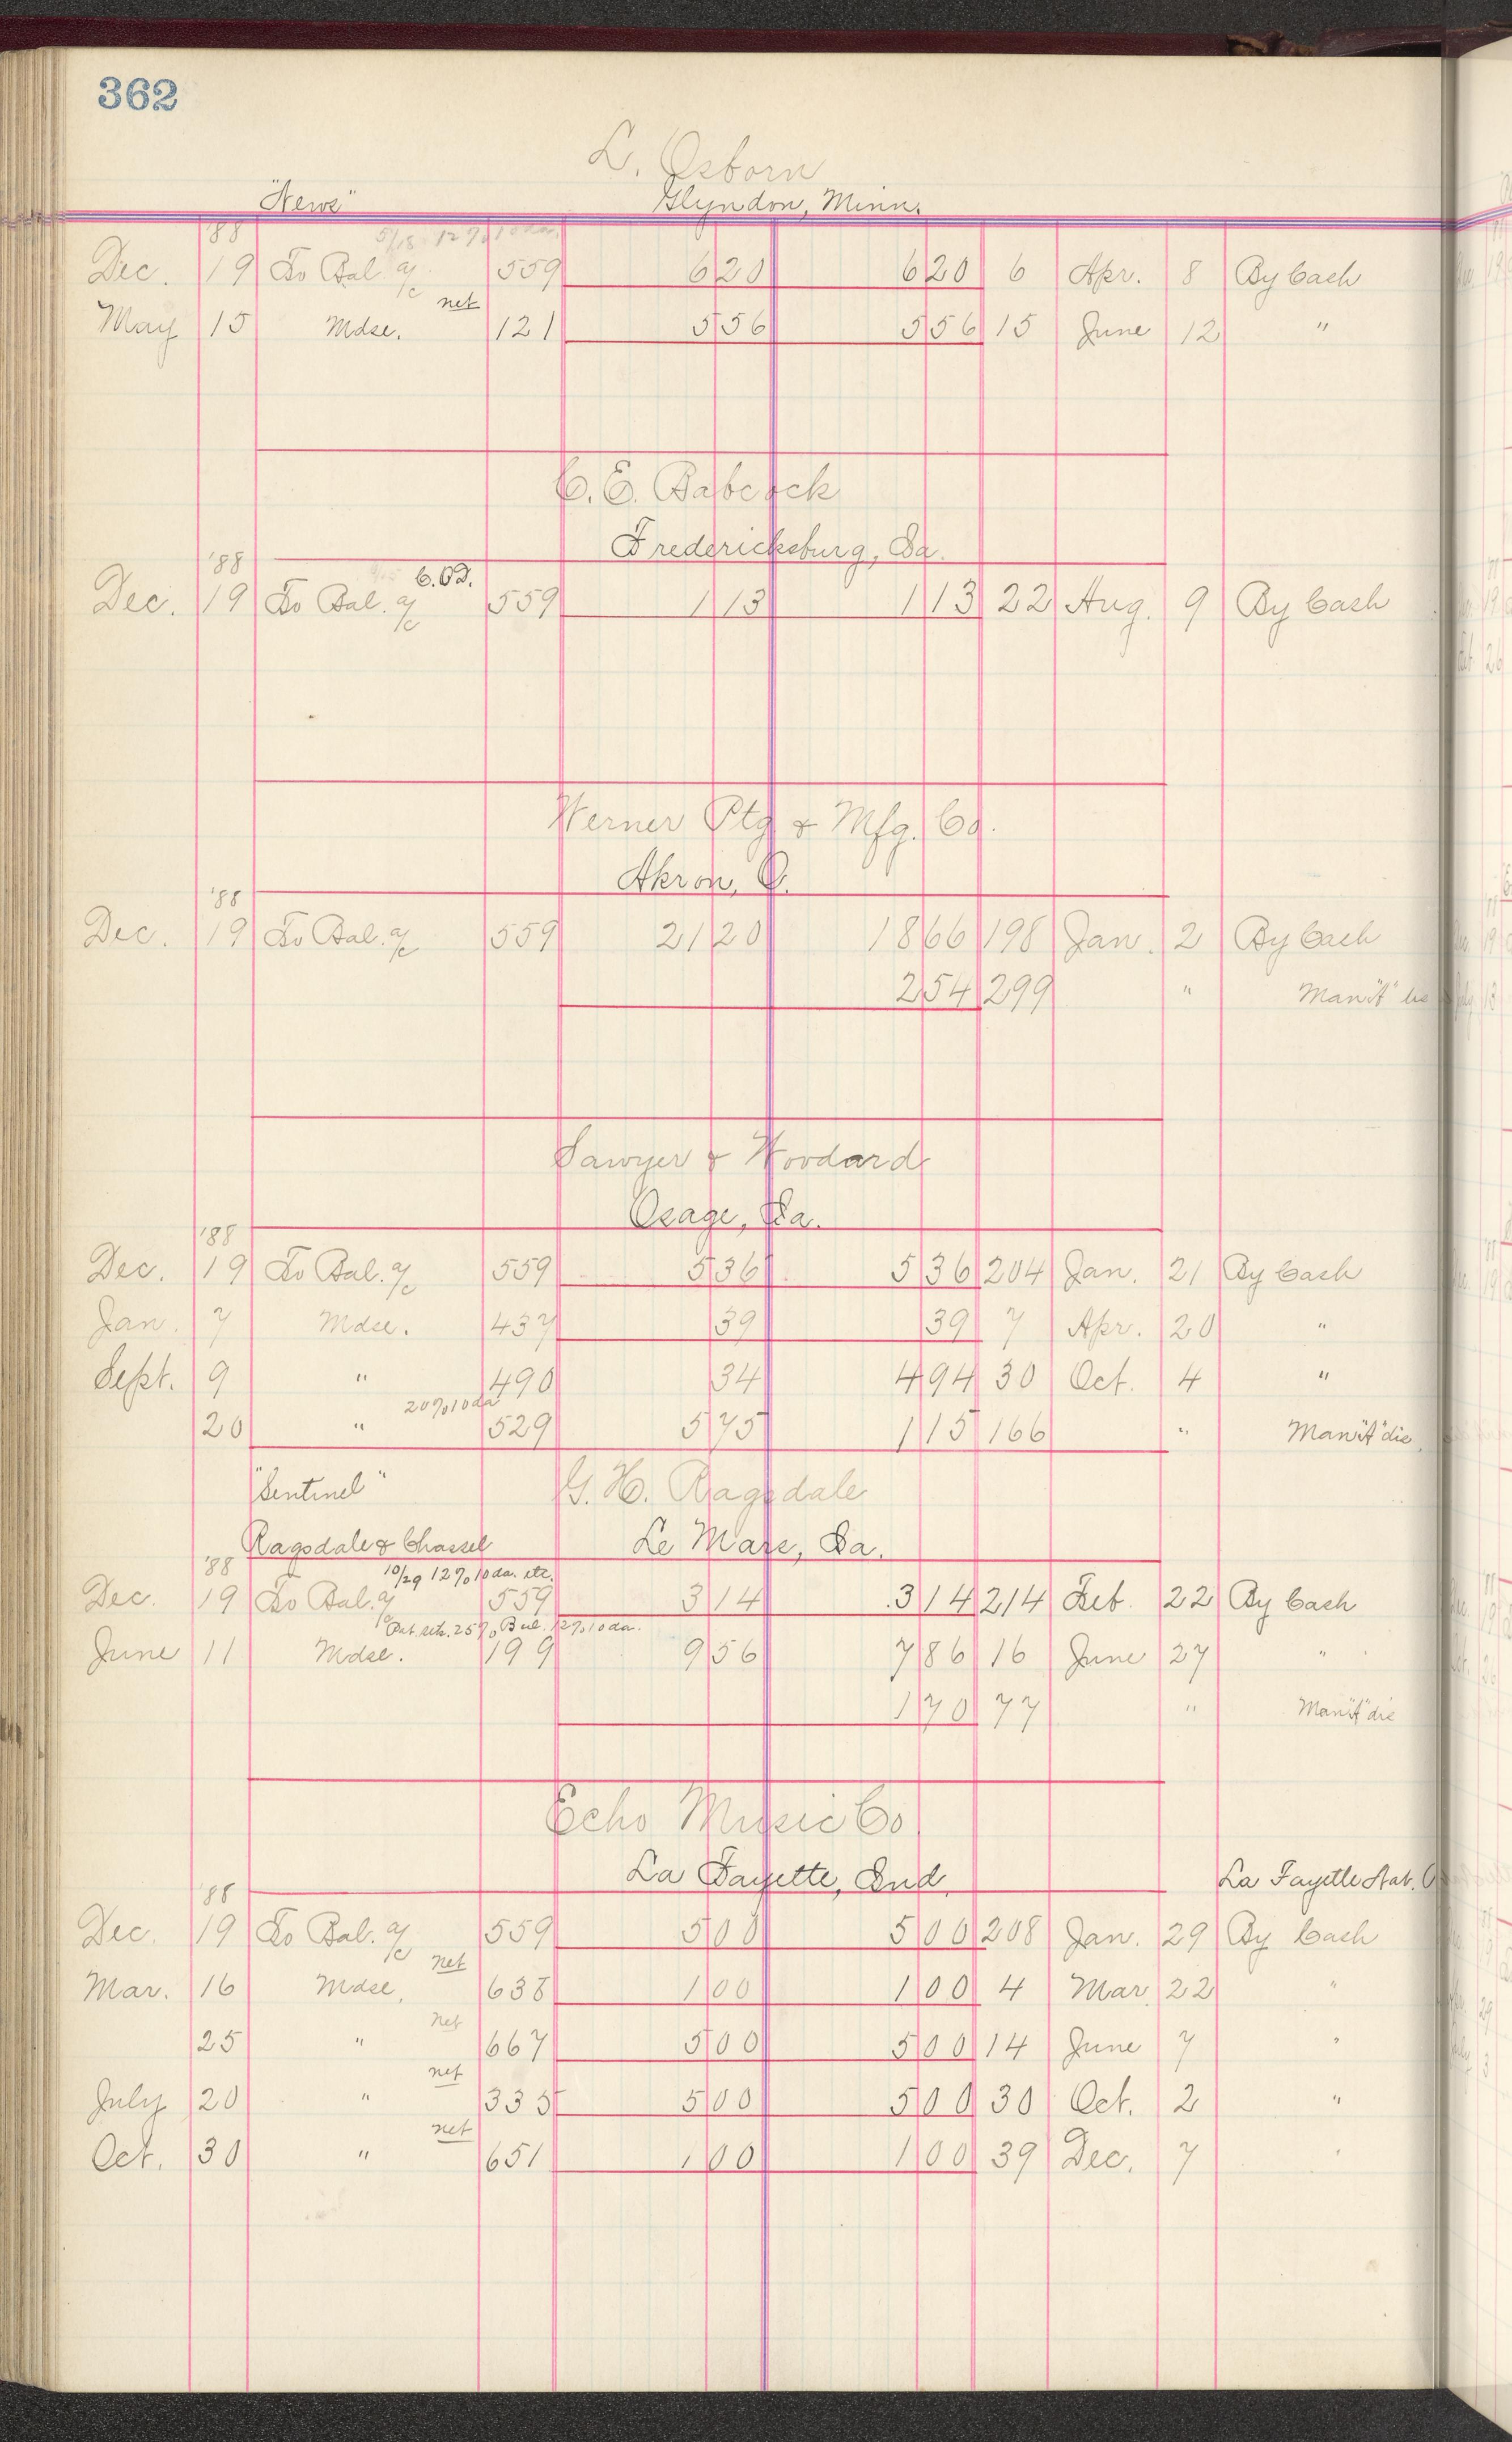 362
L. Osborn
"News" Glyndon, Minn.
'88 5/18 12% 10 da.
Dec. 19 To Bal. a/c 559 6 20 6 20 6 Apr. 8 By Cash
net
May 15 Mdse. 121 5 56 5 56 15 June 12 "
C. E. Babcock
Fredericksburg, Ia.
'88 C.O.D.
Dec. 19 To Bal. a/c 559 1 13 1 13 22 Aug. 9 By Cash
Werner Ptg & Mfg. Co.
Akron, O.
'88
Dec. 19 To Bal. a/c 559 21 20 18 66 198 Jan. 2 By Cash
2 54 299 " Man"it"
Sawyer & Woodard
Osage, Ia.
'88
Dec. 19 To Bal. a/c 559 5 36 5 36 204 Jan. 21 By Cash
Jan. 7 Mdse. 437 39 39 7 Apr. 20 "
Sept. 9 " 490 34 4 94 30 Oct. 4 "
20% 10 da
20 " 529 5 75 1 15 166 " Man"it" dis
"Sentinel" G. H. Ragsdale
Ragsdale & Chassel Le Mars, Ia.
'88 10/29 12% 10 da. etc.
Dec. 19 To Bal. a/c 559 3 14 3 14 214 Feb. 22 By Cash
25% Bal. 12% 10 da.
June 11 Mdse. 199 9 56 7 86 16 June 27 "
1 70 77 " Man"it" dis
Echo Music Co.
La Fayette, Ind. La Fayette Nat.
'88
Dec. 19 To Bal. a/c 559 5 00 5 00 208 Jan. 29 By Cash
net
Mar. 16 Mdse. 638 1 00 1 00 4 Mar. 22 "
net
25 " 667 5 00 5 00 14 June 7 "
net
July 20 " 335 5 00 5 00 30 Oct. 2 "
net
Oct. 30 " 651 1 00 1 00 39 Dec. 7 "